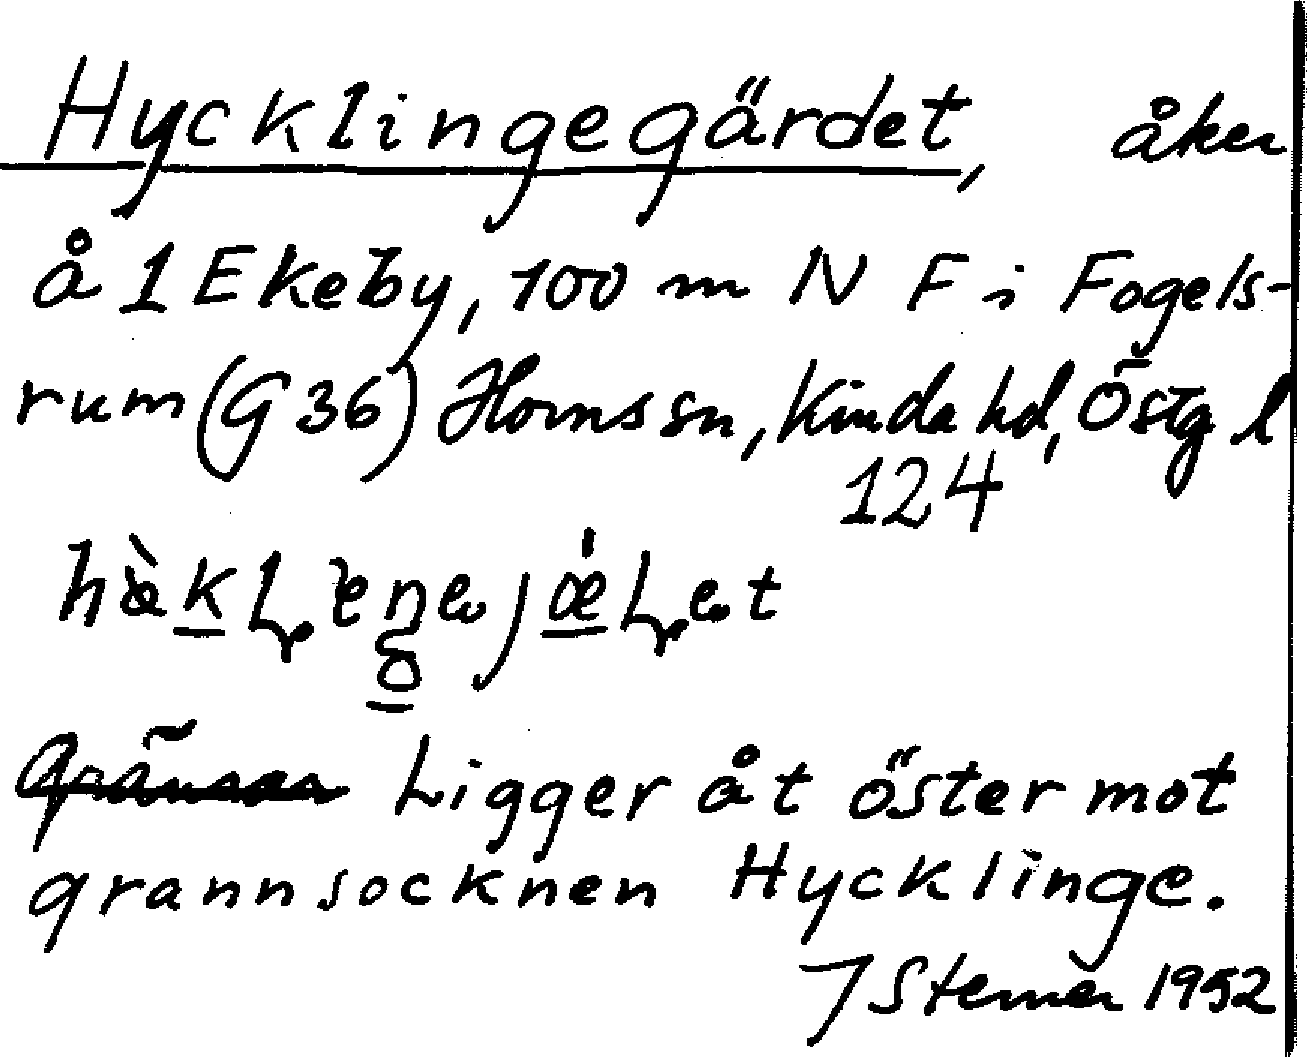 Hycklingegärdet, åker
å 1 Ekeby, 100 m N F i Fogels-
rum (G 36) Horns sn, Kinda hd, Östg l
124
Ligger åt öster mot
grannsocknen Hycklinge.
J Sterner 1952